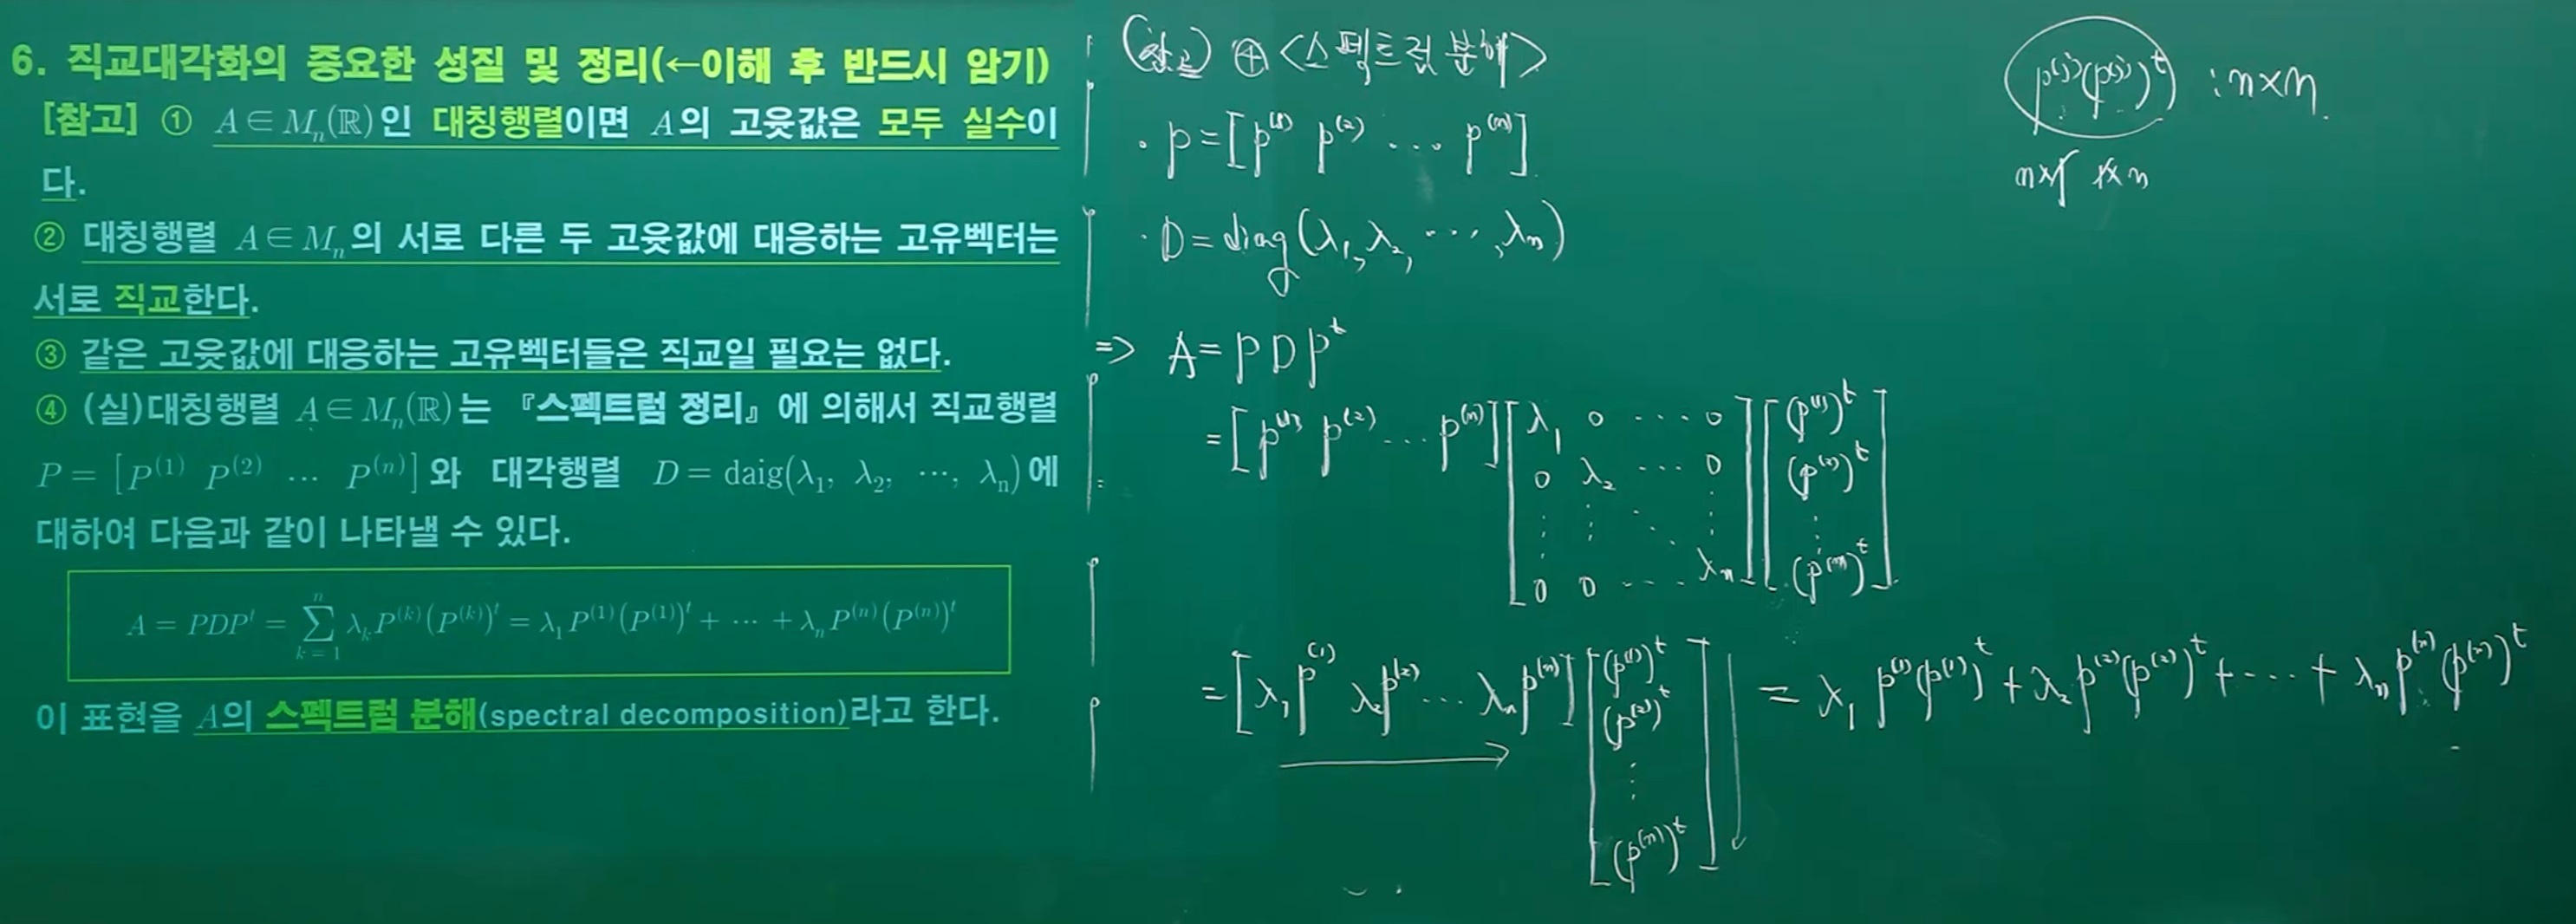 6. 직교대각화의 중요한 성질 및 정리(←이해 후 반드시 암기)
[참고] ① A∈Mₙ(ℝ)인 대칭행렬이면 A의 고윳값은 모두 실수이
다.
② 대칭행렬 A∈Mₙ의 서로 다른 두 고윳값에 대응하는 고유벡터는
서로 직교한다.
③ 같은 고윳값에 대응하는 고유벡터들은 직교일 필요는 없다.
④ (실)대칭행렬 A∈Mₙ(ℝ)는 『스펙트럼 정리』에 의해서 직교행렬
P = [P⁽¹⁾ P⁽²⁾ … P⁽ⁿ⁾]와 대각행렬 D = daig(λ₁, λ₂, …, λₙ)에
대하여 다음과 같이 나타낼 수 있다.
A = PDPᵗ = ∑ₖ₌₁ⁿ λₖP⁽ᵏ⁾(P⁽ᵏ⁾)ᵗ = λ₁P⁽¹⁾(P⁽¹⁾)ᵗ + … + λₙP⁽ⁿ⁾(P⁽ⁿ⁾)ᵗ
이 표현을 A의 스펙트럼 분해(spectral decomposition)라고 한다.
(참고) ④ <스펙트럼 분해>
· P = [P⁽¹⁾ P⁽²⁾ … P⁽ⁿ⁾]
· D = diag(λ₁, λ₂, …, λₙ)
⇒ A = P D Pᵗ
= [P⁽¹⁾ P⁽²⁾ … P⁽ⁿ⁾] [λ₁ 0 … 0 [(P⁽¹⁾)ᵗ
0 λ₂ … 0 (P⁽²⁾)ᵗ
⋮ ⋮ ⋱ ⋮ ⋮
0 0 … λₙ] (P⁽ⁿ⁾)ᵗ]
= [λ₁P⁽¹⁾ λ₂P⁽²⁾ … λₙP⁽ⁿ⁾] [(P⁽¹⁾)ᵗ = λ₁P⁽¹⁾(P⁽¹⁾)ᵗ + λ₂P⁽²⁾(P⁽²⁾)ᵗ + … + λₙP⁽ⁿ⁾(P⁽ⁿ⁾)ᵗ
(P⁽²⁾)ᵗ
⋮
(P⁽ⁿ⁾)ᵗ]
P⁽ʲ⁾(P⁽ʲ⁾)ᵗ : n×n.
n×1 1×n